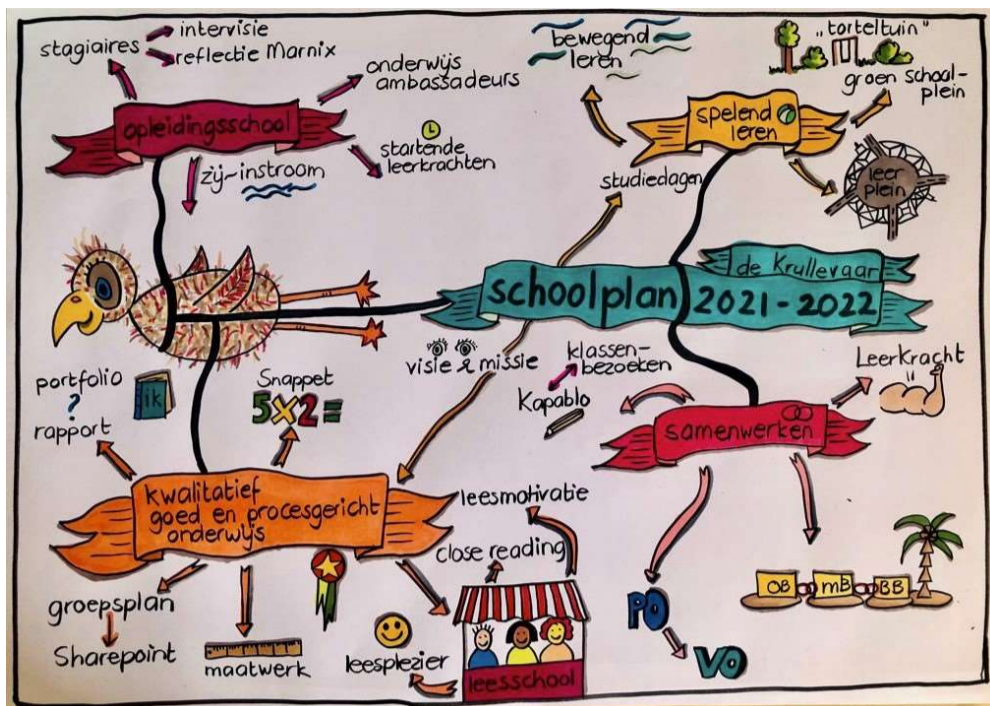 stagiaires
intervisie
reflectie Marnix
onderwijs
ambassadeurs
opleidingsschool
startende
leerkrachten
zij-instroom
bewegend
leren
"torteltuin"
groen school-
plein
spelend
leren
leer
plein
studiedagen
schoolplan
de Krullevaar
2021-2022
visie & missie
klassen-
bezoeken
Kapablo
LeerKracht
samenwerken
portfolio
?
rapport
ik
Snappet
5x2=
kwalitatief
goed en procesgericht
onderwijs
leesmotivatie
close reading
groepsplan
Sharepoint
maatwerk
leesplezier
leesschool
PO
VO
OB
mB
BB